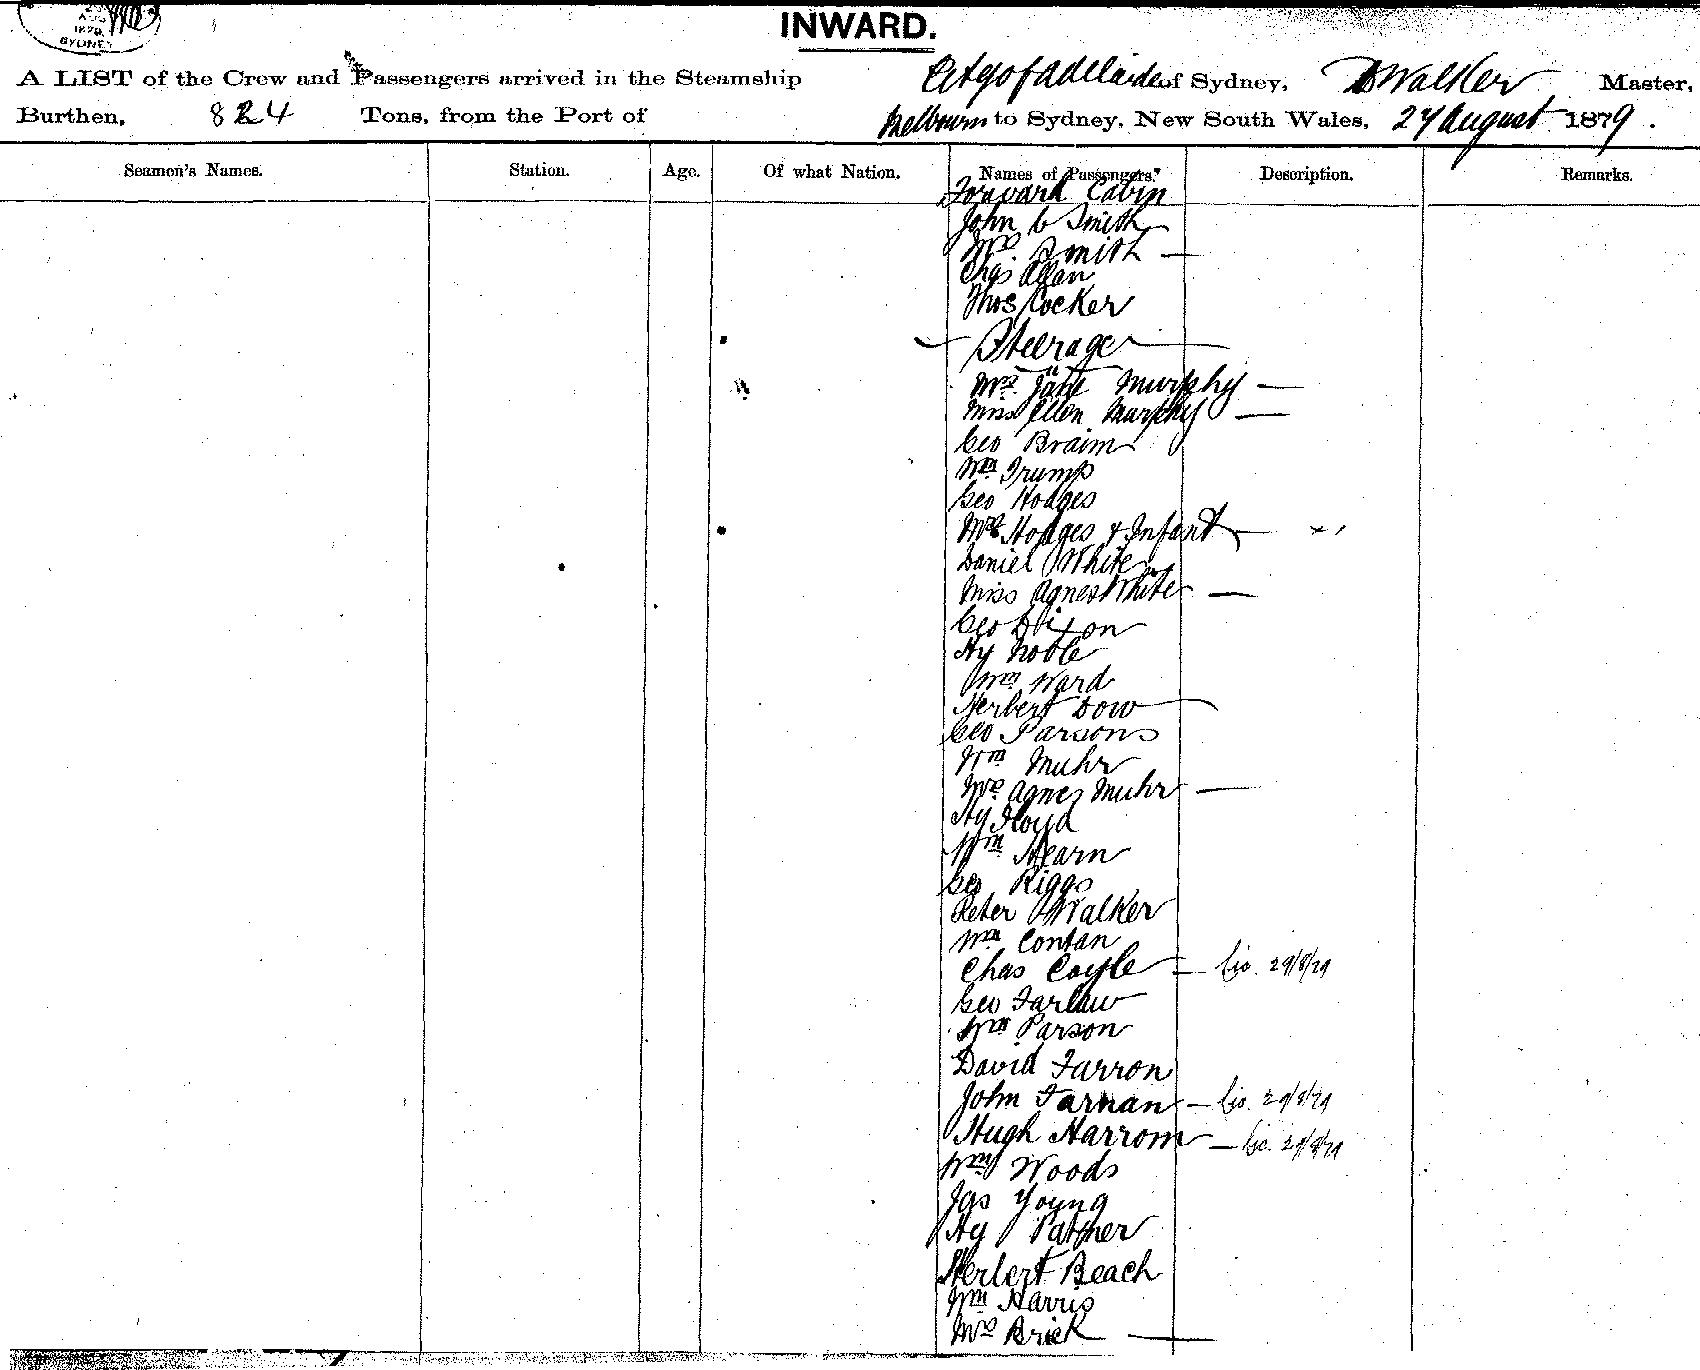 SYDNEY
INWARD.
A LIST of the Crew and Passengers arrived in the Steamship City of Adelaide of Sydney, D Walker Master,
Burthen, 824 Tons, from the Port of Melbourn to Sydney, New South Wales, 27 August 1879.
Seamen's Names. Station. Age. Of what Nation. Names of Passengers. Description. Remarks.
Forward Cabin
John C Smith
Mrs Smith —
Chas Allan
Thos Cocker
Steerage
Mrs Jane Murphy —
Miss Ellen Murphy —
Geo Braim
Wm Trump
Geo Hodges
Mrs Hodges & Infant —
Daniel White
Miss Agnes White —
Geo Dixon
Hy Noble
Wm Ward
Herbert Dow
Geo Parsons
Wm Muhr
Mrs Agnes Muhr —
Hy Floyd
Wm Hearn
Geo Riggs
Peter Walker
Wm Contan
Chas Coyle — 29/8/79
Geo Farlow
Wm Parson
David Farron
John Farnan — 29/8/79
Hugh Harrom — 29/8/79
Wm Woods
Jas Young
Hy Palmer
Herbert Beach
Wm Harris
Mrs Brick —